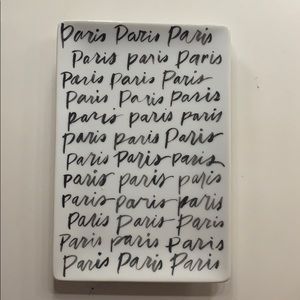 Paris Paris Paris
Paris paris Paris
Paris Paris Paris
Paris Paris Paris
paris paris paris
paris paris Paris
Paris Paris paris
paris paris paris
paris paris paris
Paris Paris Paris
Paris paris Paris
Paris Paris Paris